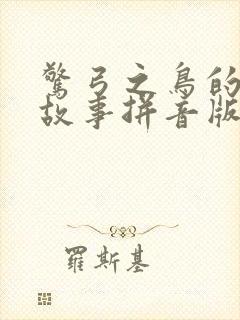 驚弓之鳥的
故事拼音版
羅斯基